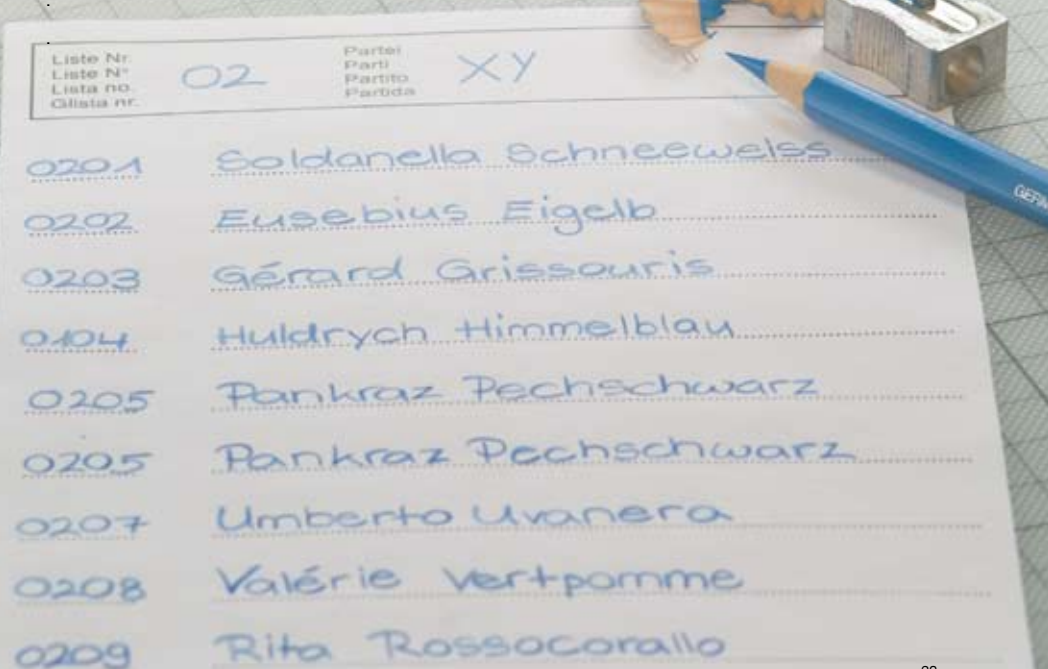 Liste Nr. 02 Partei XY
Liste N° Parti
Lista no. Partito
Glista nr. Partida
0201 Soldanella Schneeweiss
0202 Eusebius Eigelb
0203 Gérard Grissouris
0104 Huldrych Himmelblau
0205 Pankraz Pechschwarz
0205 Pankraz Pechschwarz
0207 Umberto Uvanera
0208 Valérie Vertpomme
0209 Rita Rossocorallo